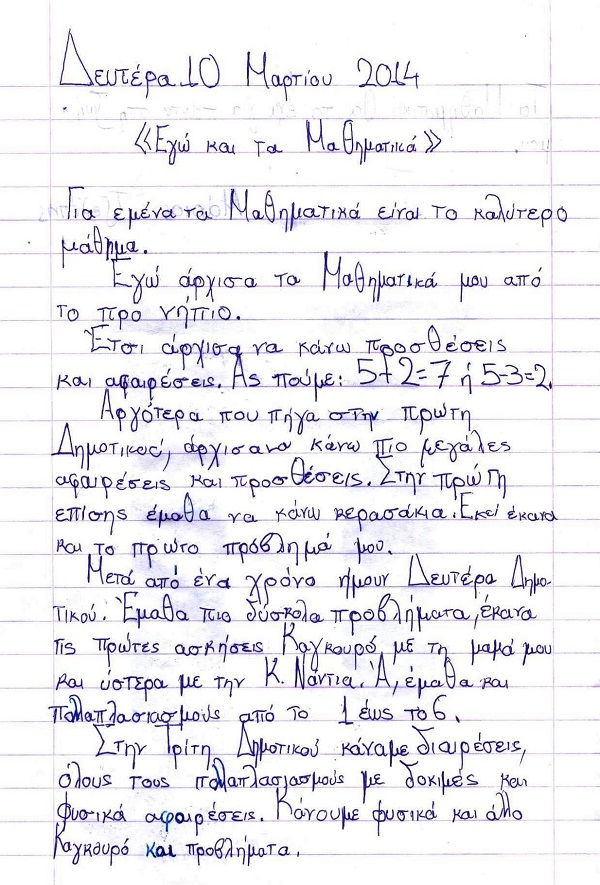 Δευτέρα 10 Μαρτίου 2014
《Εγώ και τα Μαθηματικά》
Για εμένα τα Μαθηματικά είναι το καλύτερο
μάθημα.
Εγώ άρχισα τα Μαθηματικά μου από
το προ νήπιο.
Έτσι άρχισα να κάνω προσθέσεις
και αφαιρέσεις. Ας πούμε: 5+2=7 ή 5-3=2.
Αργότερα που πήγα στην πρώτη
Δημοτικού, άρχισα να κάνω πιο μεγάλες
αφαιρέσεις και προσθέσεις. Στην πρώτη
επίσης έμαθα να κάνω κερασάκια. Εκεί έκανα
και το πρώτο πρόβλημά μου.
Μετά από ένα χρόνο ήμουν Δευτέρα Δημο-
τικού. Έμαθα πιο δύσκολα προβλήματα, έκανα
τις πρώτες ασκήσεις Καγκουρό με τη μαμά μου
και ύστερα με την Κ. Νάντια. Ά, έμαθα και
πολαπλασιασμούς από το 1 έως το 6.
Στην Τρίτη Δημοτικού κάναμε διαιρέσεις,
όλους τους πολαπλασιασμούς με δοκιμές και
φυσικά αφαιρέσεις. Κάνουμε φυσικά και άλλο
Καγκουρό και προβλήματα.